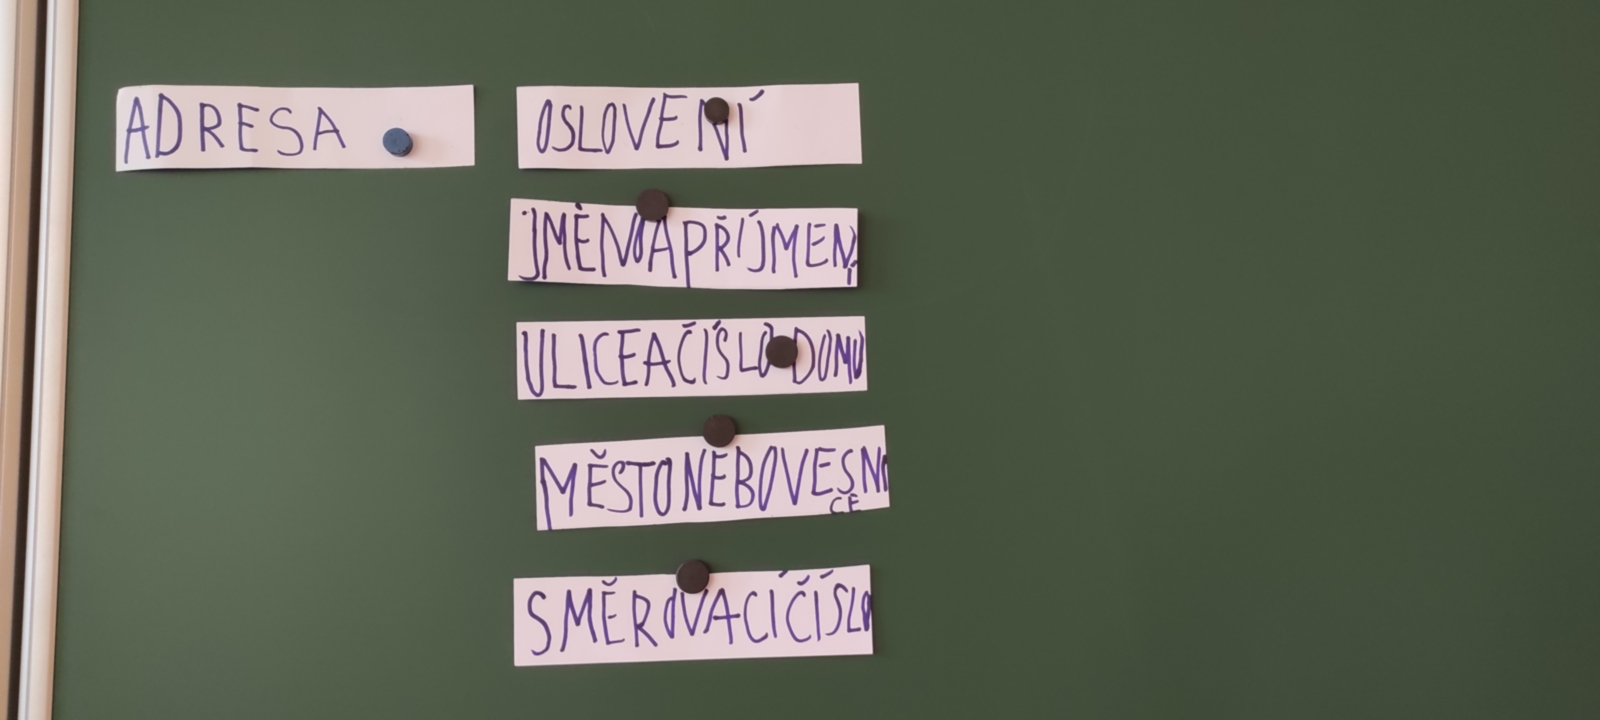 ADRESA
OSLOVENÍ
JMÉNO A PŘÍJMENÍ
ULICE A ČÍSLO DOMU
MĚSTO NEBO VESNI
CE
SMĚROVACÍ ČÍSLO